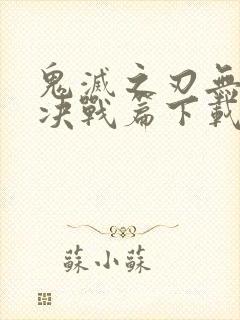 鬼滅之刃無
决戰篇下載
蘇小蘇